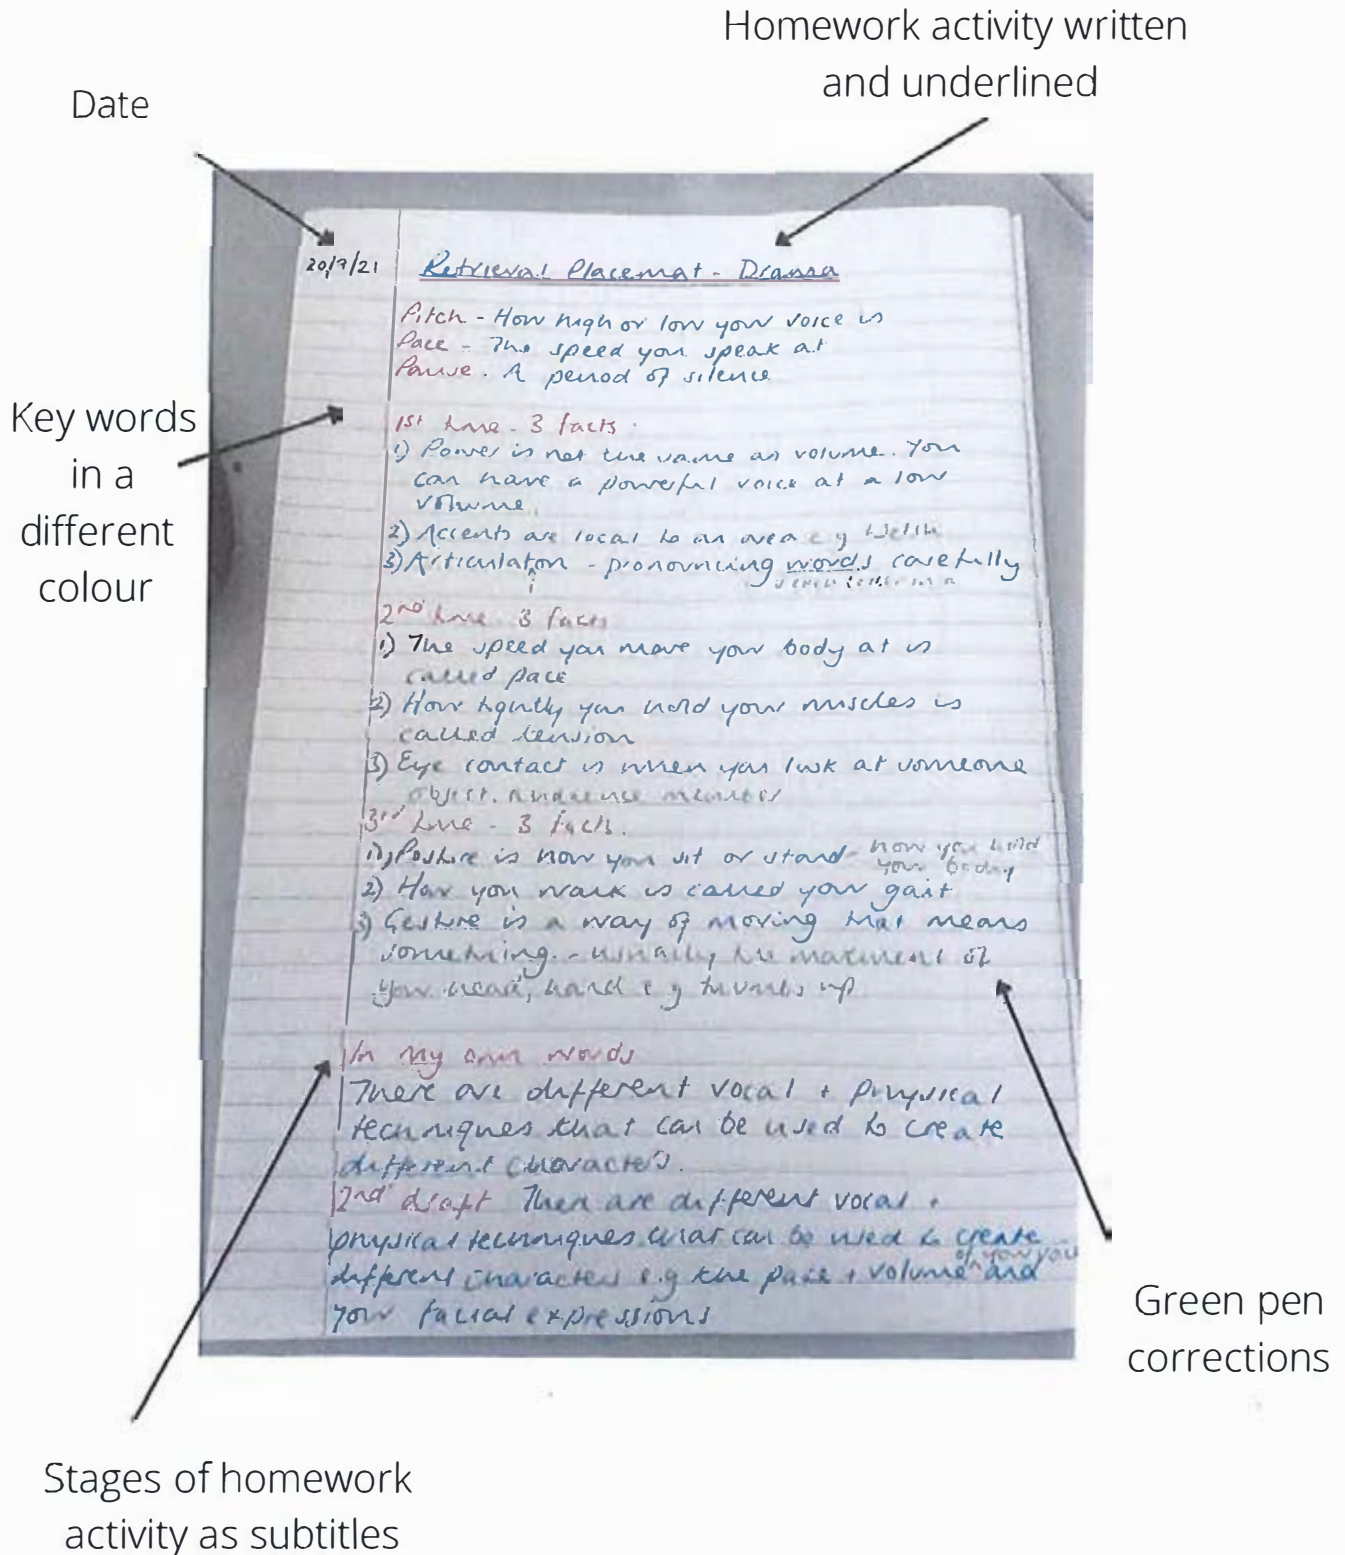 Homework activity written
and underlined
Date
20/9/21
Retrieval Placemat - Drama
Pitch - How high or low your voice is
Pace - The speed you speak at
Pause - A period of silence
Key words
in a
different
colour
1st time - 3 facts
1) Power is not the same as volume. You
can have a powerful voice at a low
volume.
2) Accents are local to an area e.g Welsh
3) Articulaton - pronouncing words carefully
i
2nd time 3 facts
1) The speed you move your body at is
called pace
2) How tightly you hold your muscles is
called tension
3) Eye contact is when you look at someone
object, audience member
3rd time - 3 facts.
1) Posture is how you sit or stand - how you hold
your body
2) How you walk is called your gait
3) Gesture is a way of moving that means
something - usually the movement of
your head, hand e.g thumbs up
In my own words
There are different vocal + physical
techniques that can be used to create
different characters.
2nd draft There are different vocal +
physical techniques that can be used to create
of how you
different characters e.g the pace + volume and
your facial expressions
Green pen
corrections
Stages of homework
activity as subtitles